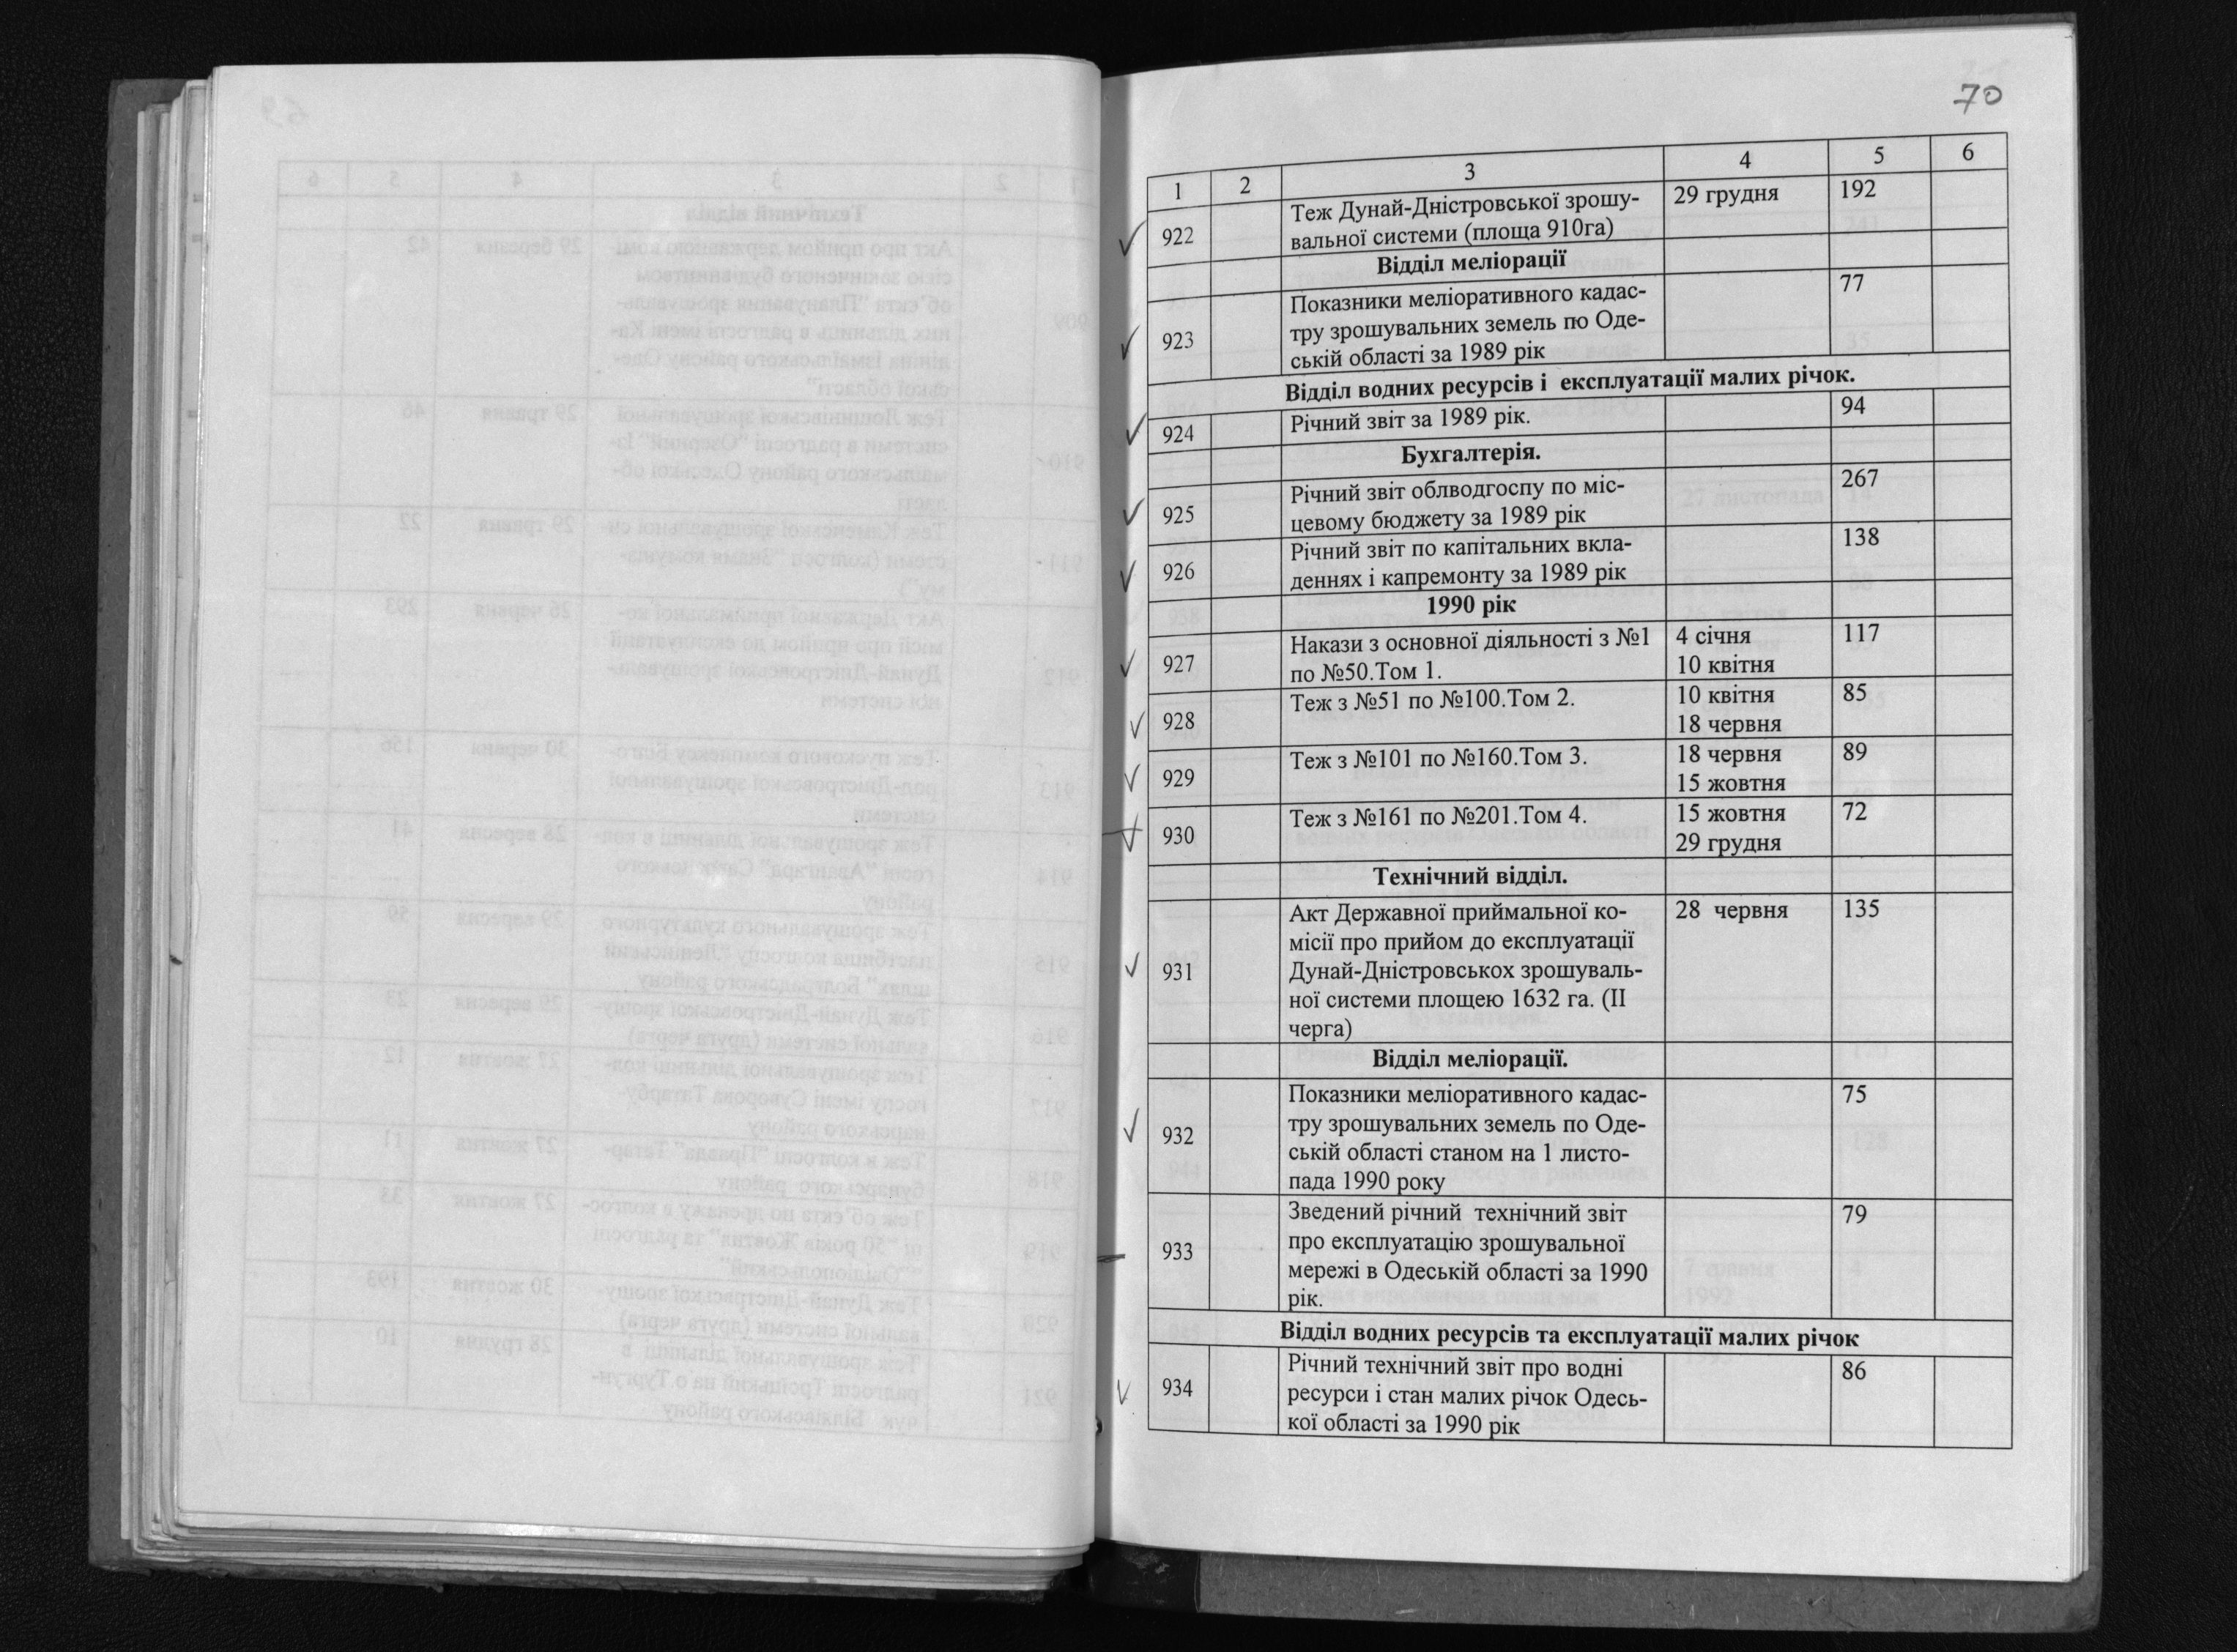 70
1 2 3 4 5 6
922 Теж Дунай-Дністровської зрошу- 29 грудня 192
вальної системи (площа 910га)
Відділ меліорації
923 Показники меліоративного кадас- 77
тру зрошувальних земель по Оде-
ській області за 1989 рік
Відділ водних ресурсів і експлуатації малих річок.
924 Річний звіт за 1989 рік. 94
Бухгалтерія.
925 Річний звіт облводгоспу по міс- 267
цевому бюджету за 1989 рік
926 Річний звіт по капітальних вкла- 138
деннях і капремонту за 1989 рік
1990 рік
927 Накази з основної діяльності з №1 4 січня 117
по №50.Том 1. 10 квітня
928 Теж з №51 по №100.Том 2. 10 квітня 85
18 червня
929 Теж з №101 по №160.Том 3. 18 червня 89
15 жовтня
930 Теж з №161 по №201.Том 4. 15 жовтня 72
29 грудня
Технічний відділ.
931 Акт Державної приймальної ко- 28 червня 135
місії про прийом до експлуатації
Дунай-Дністровськох зрошуваль-
ної системи площею 1632 га. (II
черга)
Відділ меліорації.
932 Показники меліоративного кадас- 75
тру зрошувальних земель по Оде-
ській області станом на 1 листо-
пада 1990 року
933 Зведений річний технічний звіт 79
про експлуатацію зрошувальної
мережі в Одеській області за 1990
рік.
Відділ водних ресурсів та експлуатації малих річок
934 Річний технічний звіт про водні 86
ресурси і стан малих річок Одесь-
кої області за 1990 рік